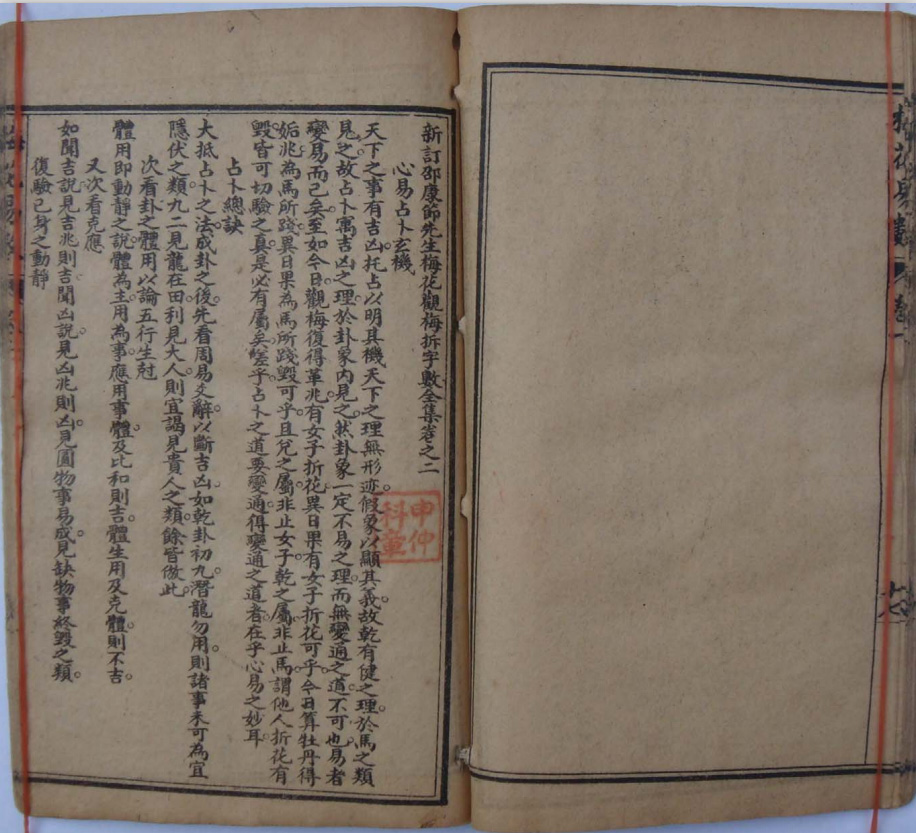 新訂邵康節先生梅花觀梅拆字數全集卷之二
心易占卜玄機
天下之事有吉凶。托占以明其機。天下之理無形迹。假象以顯其義。故乾有健之理。於馬之類
見之。故占卜寓吉凶之理。於卦象內見之。然卦象一定不易之理。而無變通之道。不可也。易者
變易而已矣。至如今日觀梅復得革兆。有女子折花。異日果有女子折花可乎。今日算牡丹得
姤兆。為馬所踐。異日果為馬所踐毀可乎。且兌之屬。非止女子。乾之屬。非止馬。謂他人折花有
毀。皆可切驗之真。是必有屬矣。嗟乎。占卜之道。要變通。得變通之道者。在乎心易之妙耳
占卜總訣
大抵占卜之法。成卦之後。先看周易爻辭。以斷吉凶。如乾卦初九。潛龍勿用。則諸事未可為。宜
隱伏之類。九二見龍在田。利見大人。則宜謁見貴人之類。餘皆倣此
次看卦之體用。以論五行生尅
體用即動靜之說。體為主。用為事。應用事體。及比和則吉。體生用及克體。則不吉。
又次看克應
如聞吉說。見吉兆則吉。聞凶說。見凶兆則凶。見圓物。事易成。見缺物。事終毀之類。
復驗己身之動靜
申仲
科章
卷一
十六